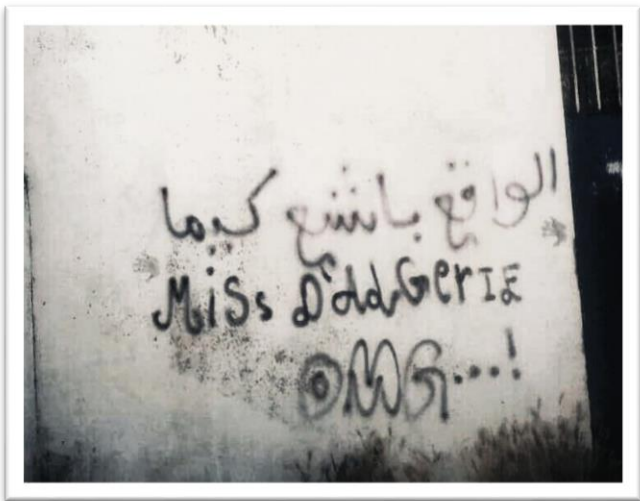 الواقع باشع كيما
Miss D'aldGerIE
OMG...!